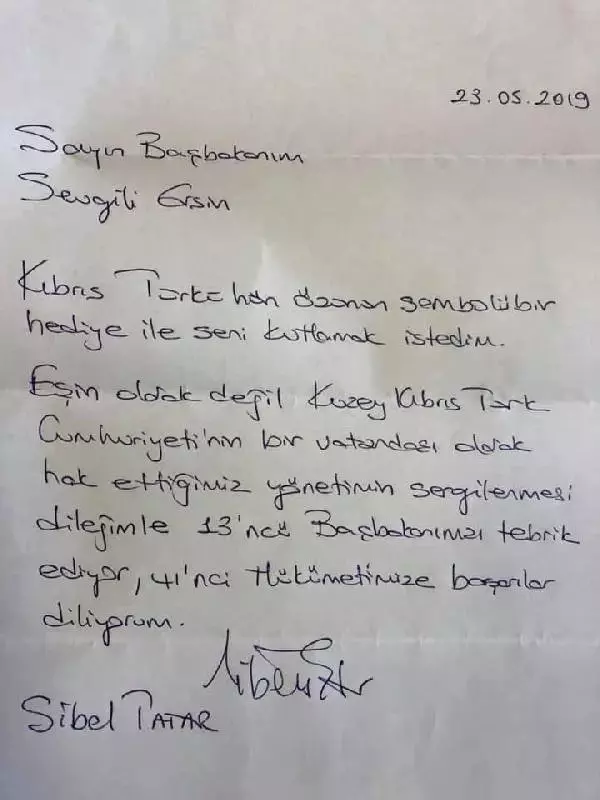 23.05.2019
Sayın Başbakanım
Sevgili Ersin
Kıbrıs Türkü'nün özünün sembolü bir
hediye ile seni kutlamak istedim.
Eşin olarak değil Kuzey Kıbrıs Türk
Cumhuriyeti'nin bir vatandaşı olarak
hak ettiğimiz yönetimin sergilenmesi
dileğimle 13'ncü Başbakanımızı tebrik
ediyor, 41'nci Hükümetimize başarılar
diliyorum.
Sibel TATAR